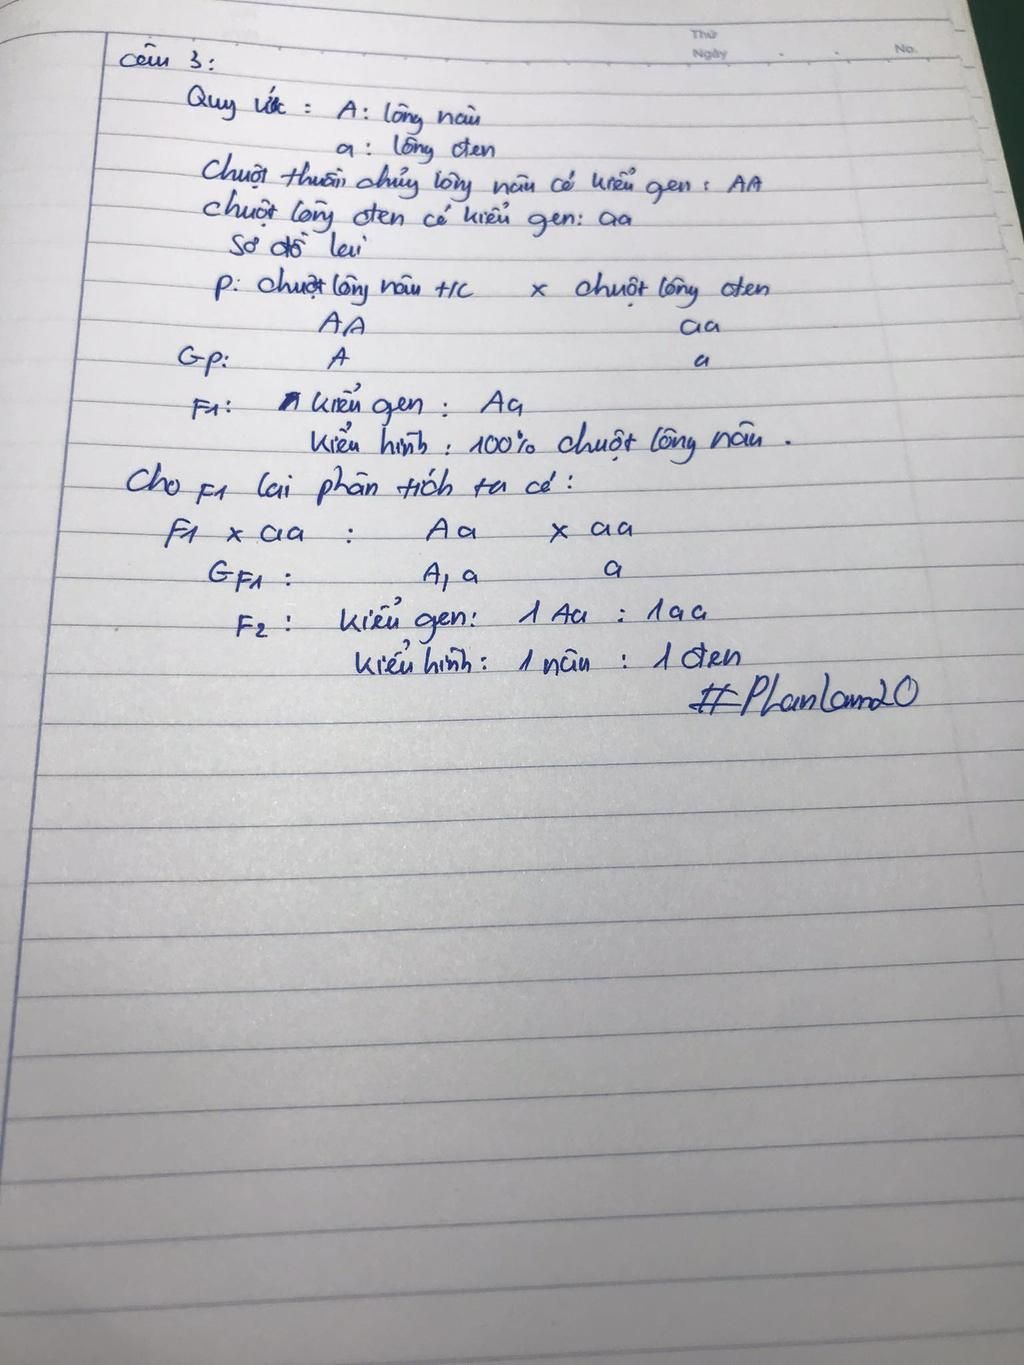 Thứ
Ngày . . No.
Câu 3:
Quy ước : A: lông nâu
a: lông đen
Chuột thuần chủng lông nâu có kiểu gen: AA
chuột lông đen có kiểu gen: aa
Sơ đồ lai
P: chuột lông nâu t/c x chuột lông đen
AA aa
Gp: A a
F1: kiểu gen : Aa
kiểu hình : 100% chuột lông nâu .
Cho F1 lai phân tích ta có:
F1 x aa : Aa x aa
GF1 : A, a a
F2 : kiểu gen: 1 Aa : 1 aa
kiểu hình: 1 nâu : 1 đen
#Phanlam20